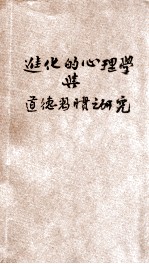 進化的心理學
與
道德習慣之研究